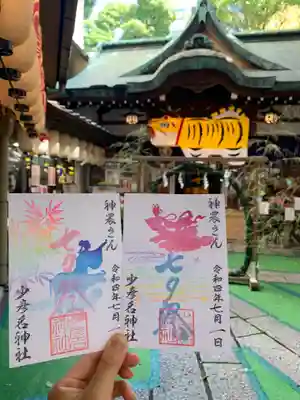 神農さん
七夕
令和四年七月一日
少彦名神社
神農さん
七夕祭
令和四年七月一日
少彦名神社